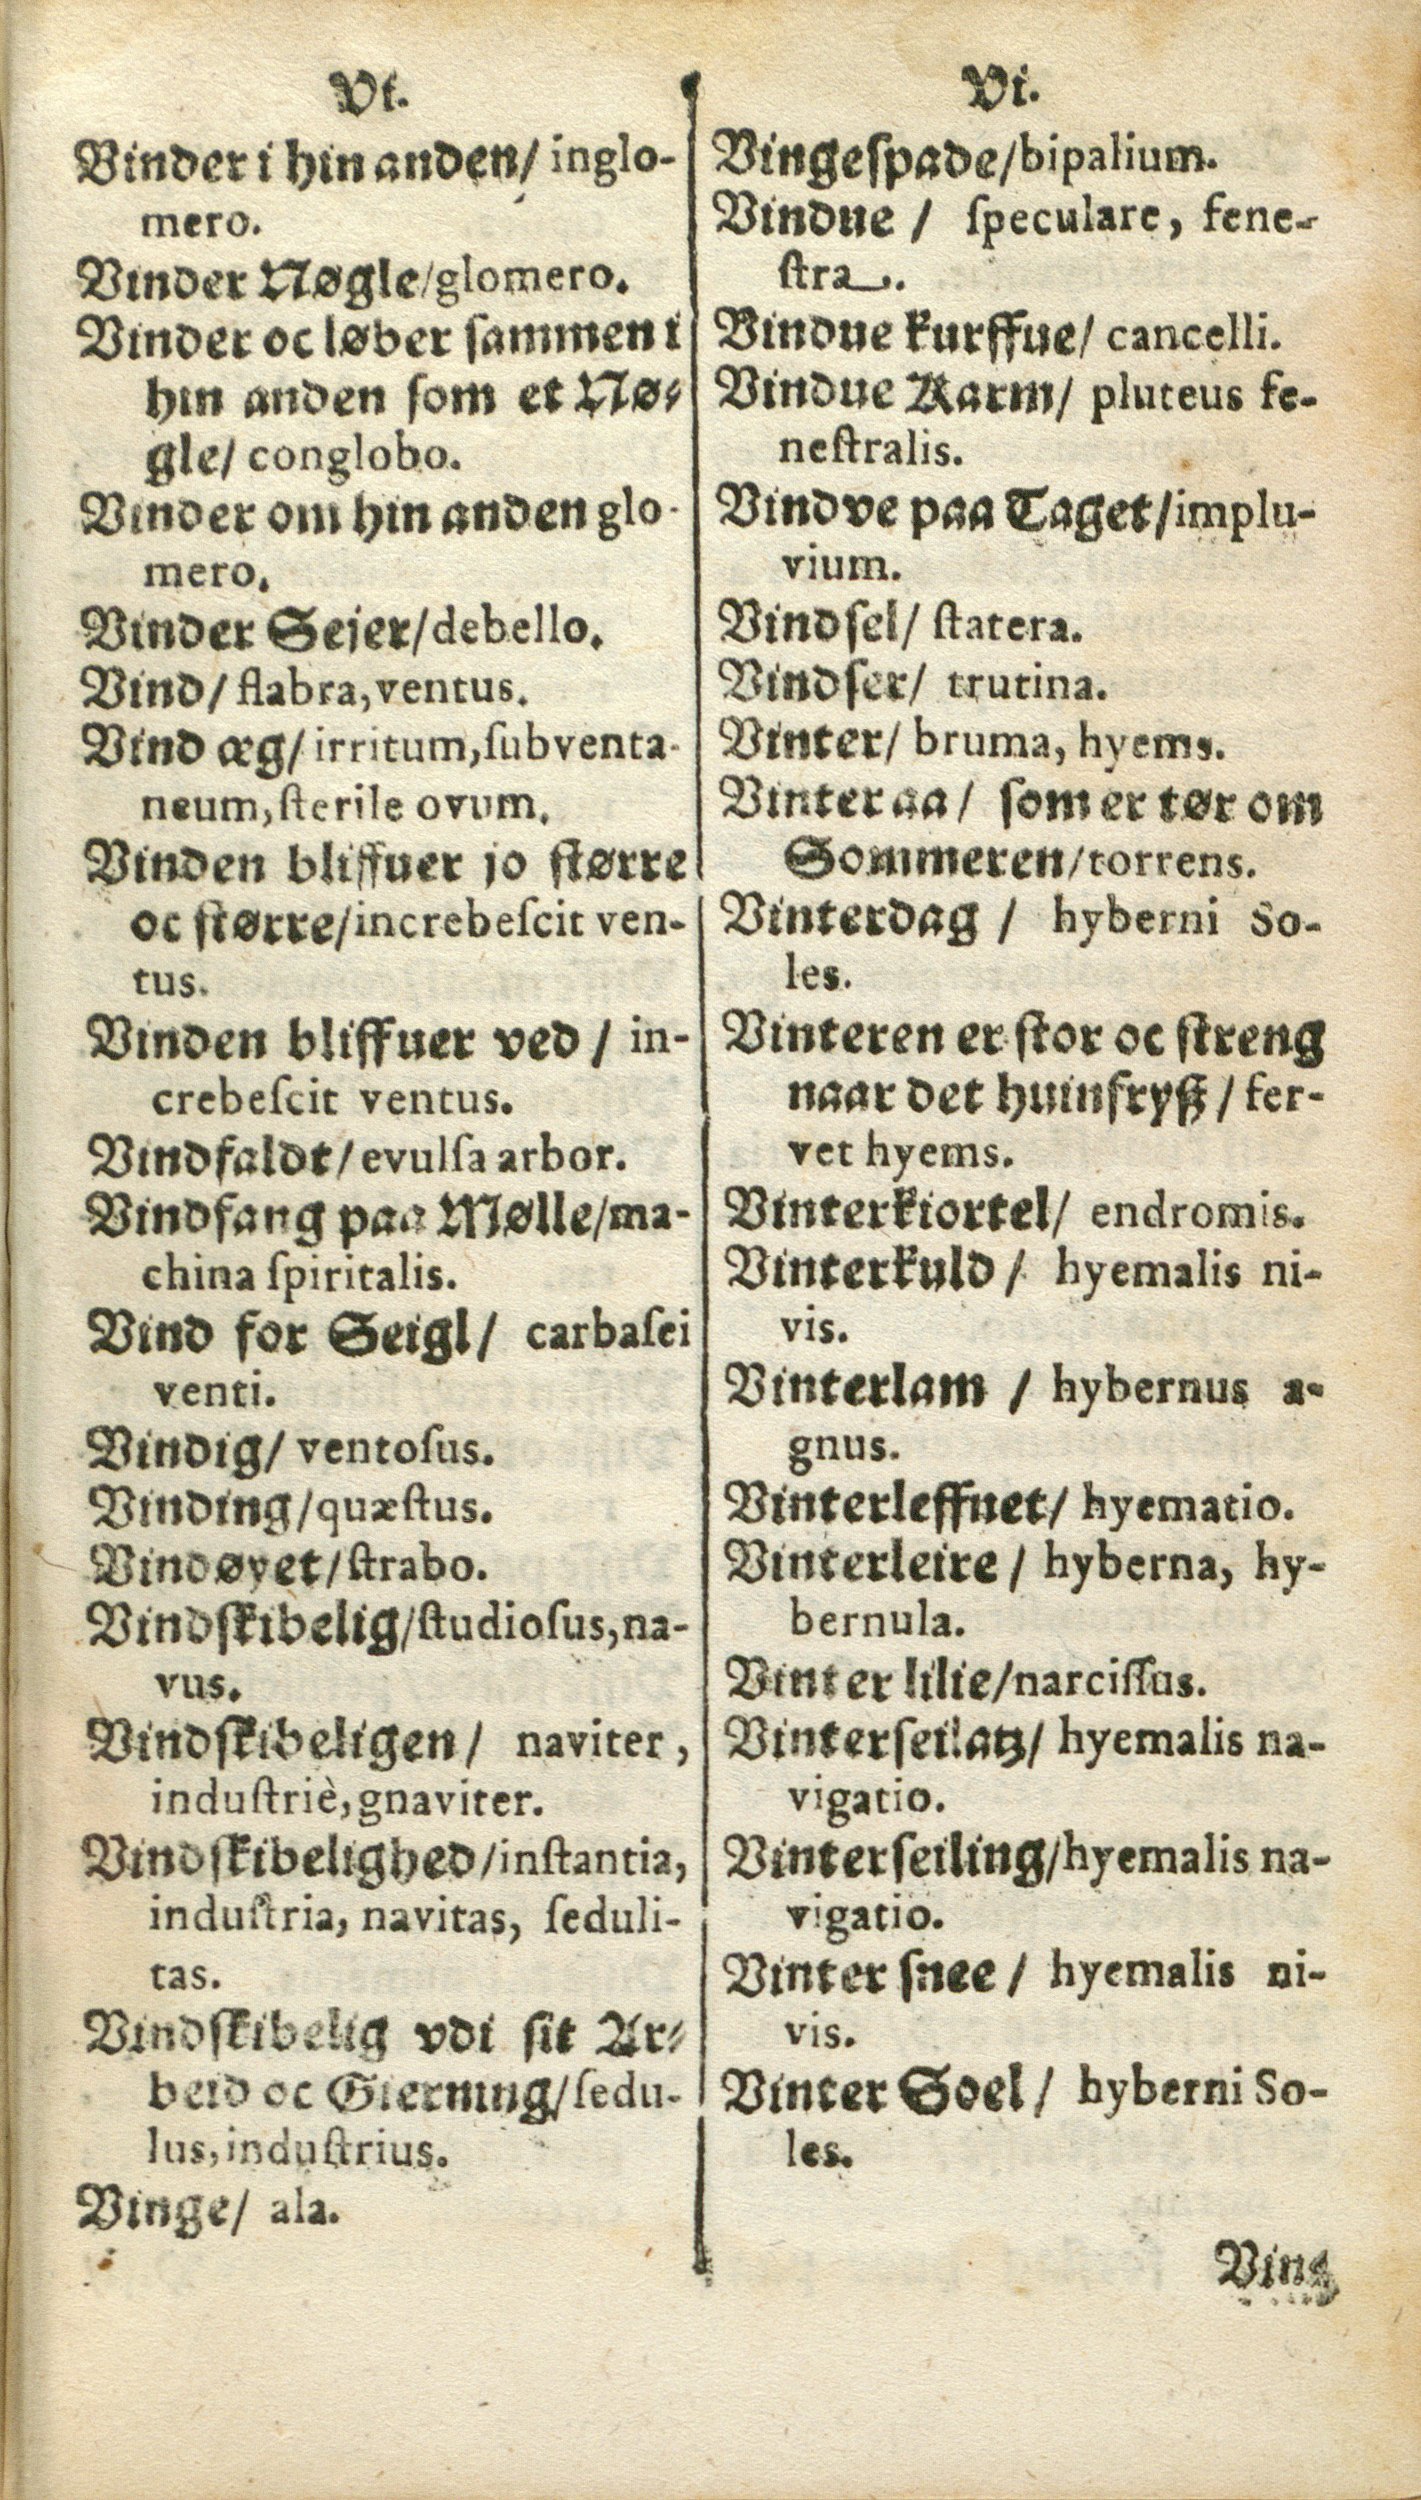 Vi.
Vinder i hin anden/ inglo-
mero.
Vinder Nøgle/glomero.
Vinder oc løber sammen i
hin anden som et Nø-
gle/ conglobo.
Vinder om hin anden glo-
mero.
Vinder Sejer/debello.
Vind/ flabra, ventus.
Vind æg/ irritum, ſubventa-
neum, ſterile ovum.
Vinden bliffuer jo ſtørre
oc ſtørre/increbeſcit ven-
tus.
Vinden bliffuer ved / in-
crebeſcit ventus.
Vindfaldt/ evulſa arbor.
Vindfang paa Mølle/ma-
china ſpiritalis.
Vind for Seigl/ carbaſei
venti.
Vindig/ ventoſus.
Vinding/quæſtus.
Vindøyet/ſtrabo.
Vindſkibelig/ſtudioſus, na-
vus.
Vindſkibeligen/ naviter,
induſtriè, gnaviter.
Vindſkibelighed/inſtantia,
induſtria, navitas, ſeduli-
tas.
Vindſkibelig vdi ſit Ar-
beid oc Gierning/ſedu-
lus, induſtrius.
Vinge/ ala.
Vi.
Vingeſpade/bipalium.
Vindue / ſpeculare, fene-
ſtra.
Vindue kurffue/ cancelli.
Vindue Karm/ pluteus fe-
neſtralis.
Vindve paa Taget/implu-
vium.
Vindſel/ ſtatera.
Vindſer/ trutina.
Vinter/ bruma, hyems.
Vinter aa / ſom er tør om
Sommeren/torrens.
Vinterdag / hyberni So-
les.
Vinteren er ſtor oc ſtreng
naar det huinfryß / fer-
vet hyems.
Vinterkiortel/ endromis.
Vinterkuld / hyemalis ni-
vis.
Vinterlam / hybernus a-
gnus.
Vinterleffnet/ hyematio.
Vinterleire / hyberna, hy-
bernula.
Vinter lilie/narciſſus.
Vinterſeilatz/ hyemalis na-
vigatio.
Vinterſeiling/hyemalis na-
vigatio.
Vinter ſnee / hyemalis ni-
vis.
Vinter Soel / hyberni So-
les.
Ving